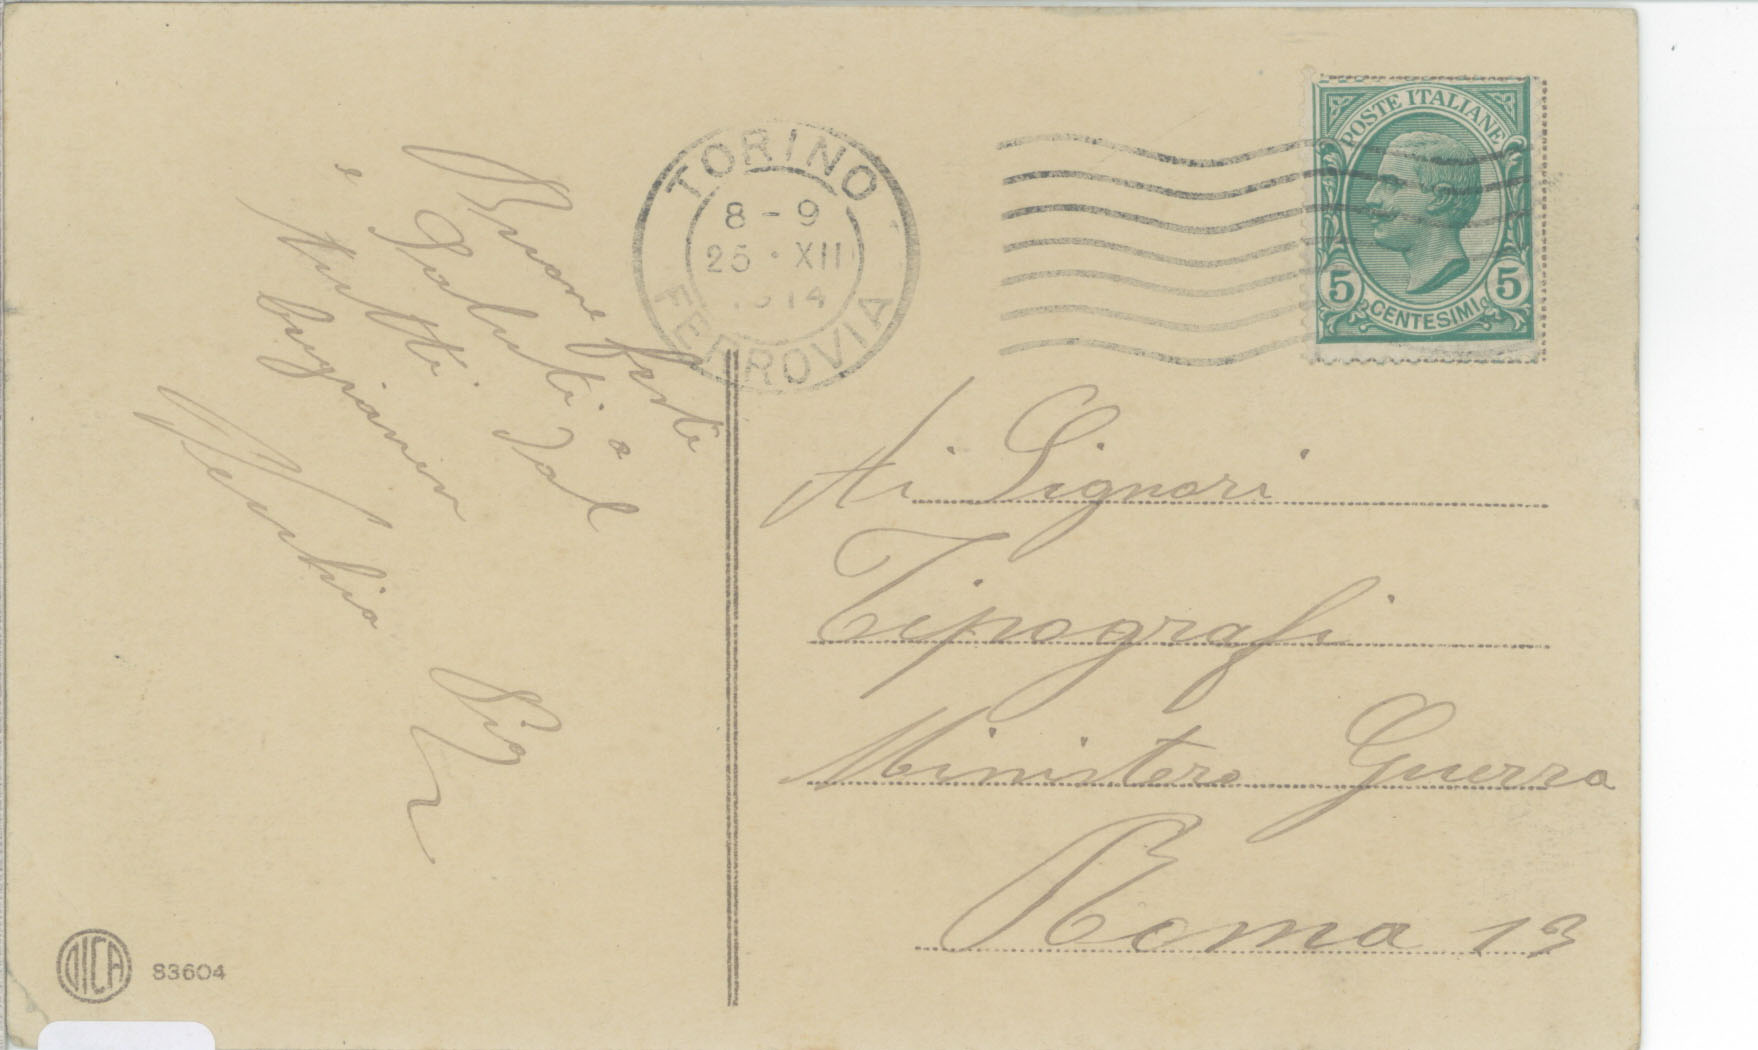 TORINO
8-9
25·XII
1914
FERROVIA
POSTE ITALIANE
5 5
CENTESIMI
Buone feste
e Saluti a
tutti dal
Ai Signori
Tipografi
Ministero Guerra
Roma 13
DICA 83604